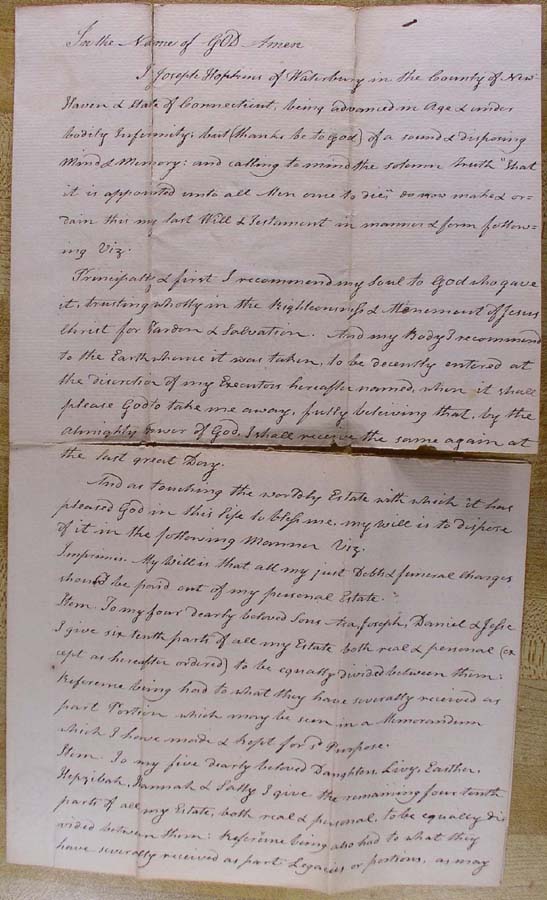 In the Name of GOD Amen
I Joseph Hopkins of Waterbury in the County of New-
Haven & State of Connecticut, being advanced in Age & under
bodily Infirmity; but (thanks be to God) of a sound & disposing
Mind & Memory: and calling to mind the solemn truth "that
it is appointed unto all Men once to die" do now make & or=
dain this my last Will & Testament in manner & form follow=
ing Viz.
Principally & first I recommend my Soul to God who gave
it, trusting wholly in the Righteousness & Atonement of Jesus
Christ for Pardon & Salvation. And my Body I recommend
to the Earth whence it was taken, to be decently entered at
the discretion of my Executors hereafter named, when it shall
please God to take me away, fully beleiving that, by the
almighty Power of God, I shall receive the same again at
the last great Day.
And as touching the worldly Estate with which it has
pleased God in this life to bless me, my will is to dispose
of it in the following Manner Viz.
Imprimis. My Will is that all my just Debts & funeral Charges
should be paid out of my personal Estate.
Item. To my four dearly beloved Sons Asa, Joseph, Daniel & Jesse
I give six tenth parts of all my Estate both real & personal (ex
cept as hereafter ordered) to be equally divided between them:
Reference being had to what they have severally received as
part Portion which may be seen in a Memorandum
which I have made & kept for sd Purpose.
Item. To my five dearly beloved Daughters Livy, Easther,
Hepzibah, Hannah & Sally I give the remaining four tenth
parts of all my Estate, both real & personal, to be equally di
vided between them: Reference being also had to what they
have severally received as part Legacies or portions, as may